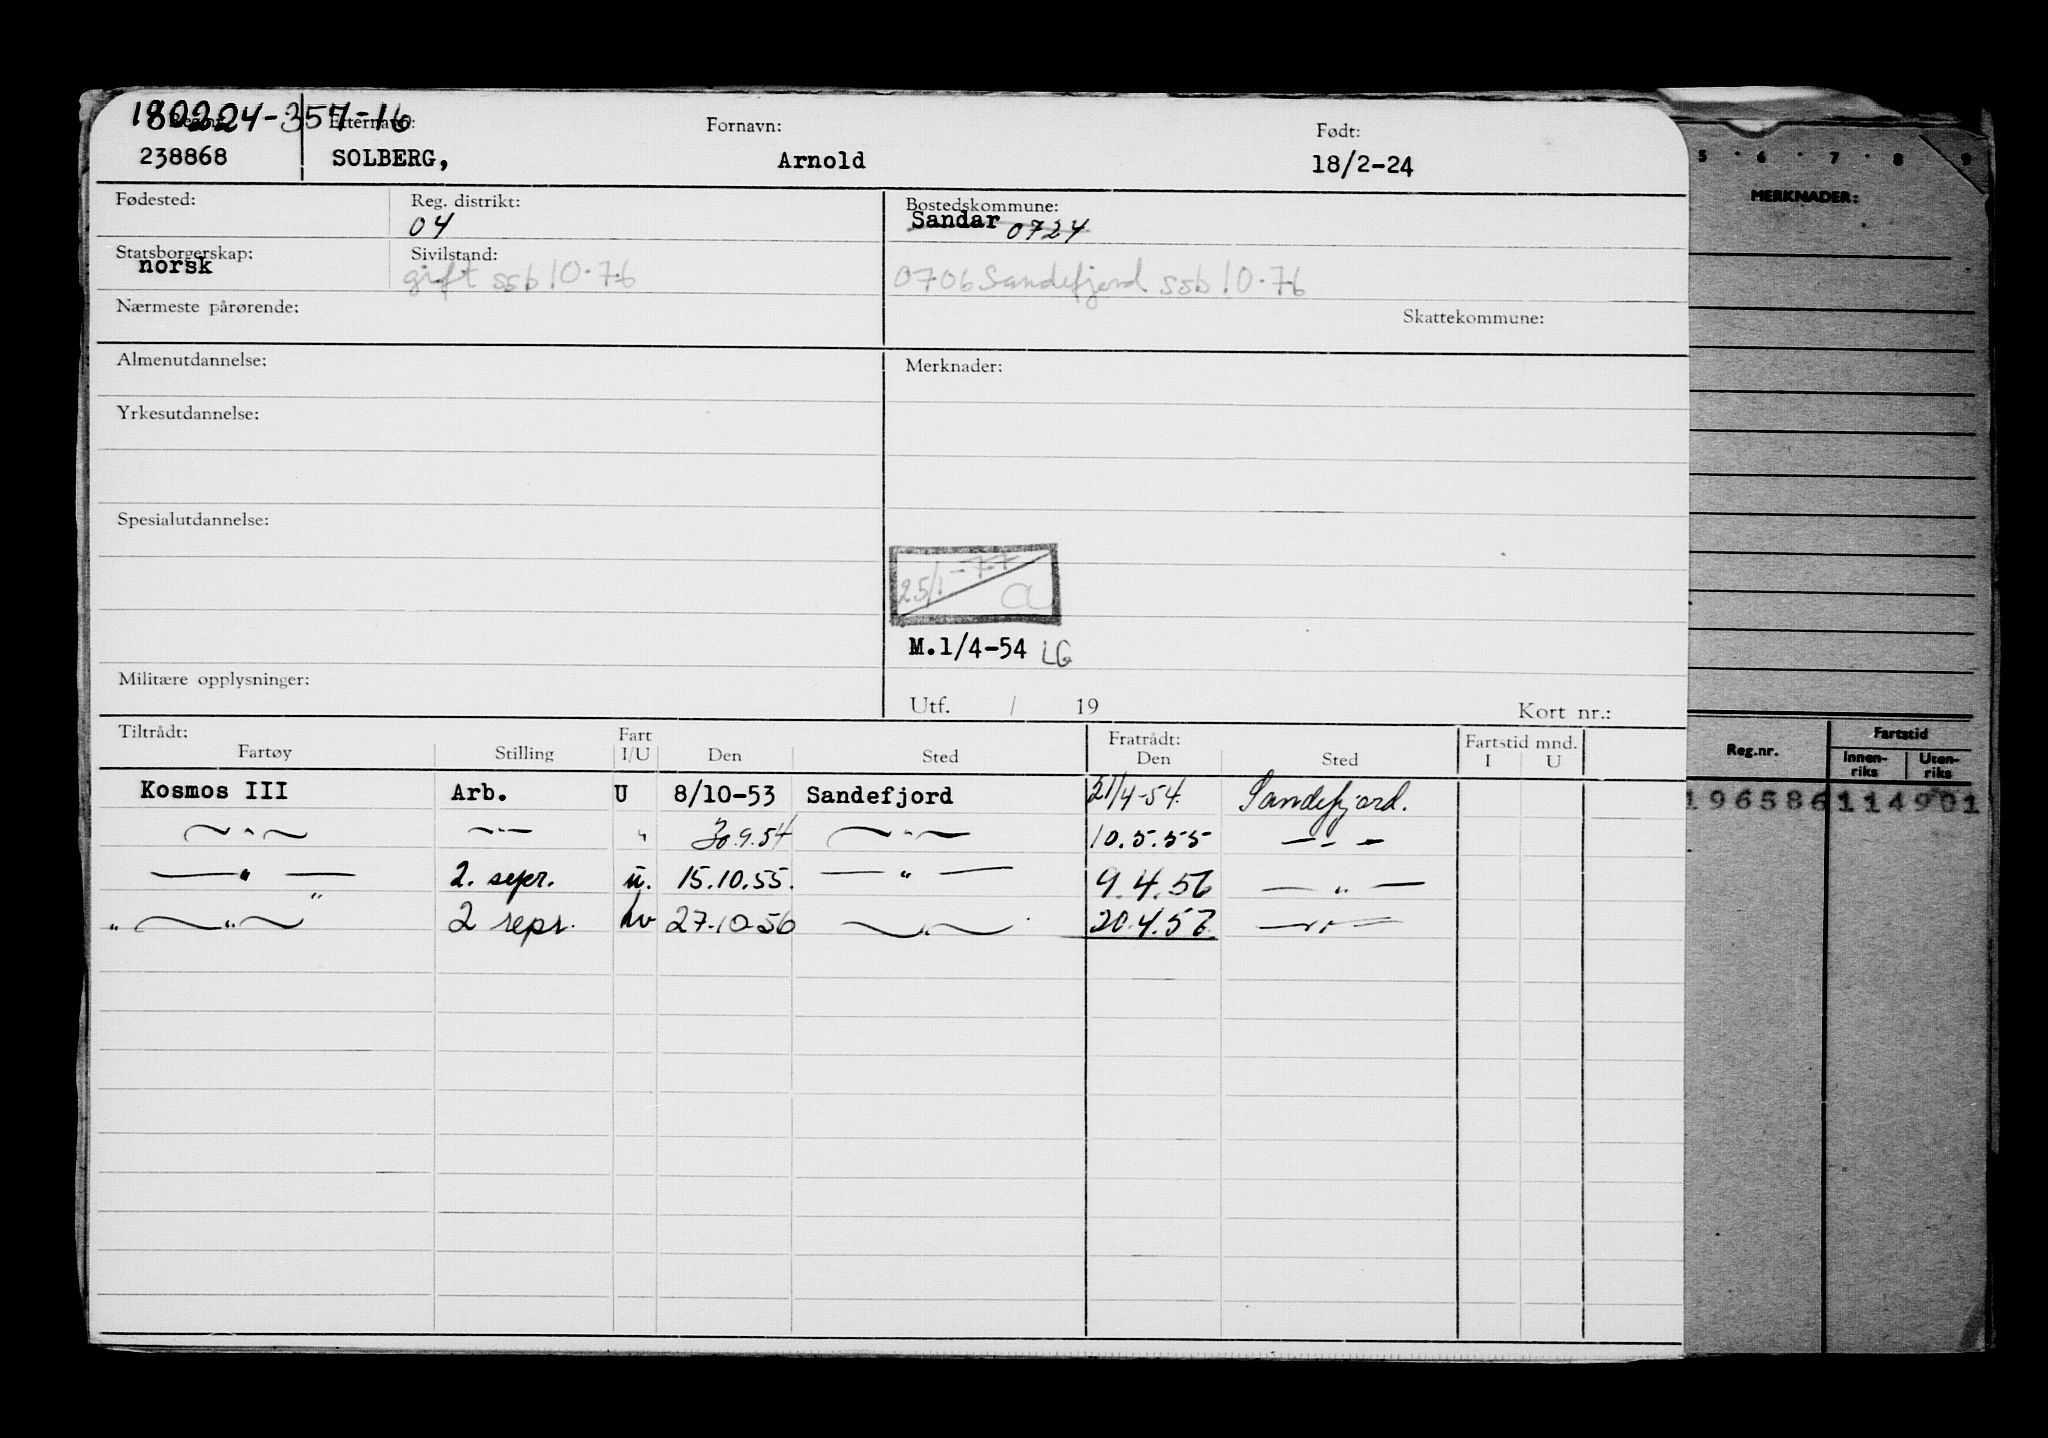 180224-357-16
Reg.nr. Etternavn: Fornavn: Født:
238868 SOLBERG, Arnold 18/2-24
Fødested: Reg. distrikt: Bostedskommune:
04 Sandar 0724
Statsborgerskap: Sivilstand:
norsk gift ssb 10.76 0706 Sandefjord ssb 10.76
Nærmeste pårørende: Skattekommune:
Almenutdannelse: Merknader:
Yrkesutdannelse:
Spesialutdannelse:
25/1-77 a
M.1/4-54 LG
Militære opplysninger:
Utf. / 19 Kort nr.:
Tiltrådt: Fart Fratrådt: Fartstid mnd.
Fartøy Stilling I/U Den Sted Den Sted I U
Kosmos III Arb. U 8/10-53 Sandefjord 21/4-54 Sandefjord.
—"— —"— " 30.9.54 —"— 10.5.55 —"—
—"— 2. sepr. u. 15.10.55. —"— 9.4.56 —"—
" —"— " 2 repr. hv 27.10-56 —"— 20.4.57 —"—
5 · 6 · 7 · 8 · 9
MERKNADER:
Reg.nr. Fartstid
Innen-riks Uten-riks
196586114901